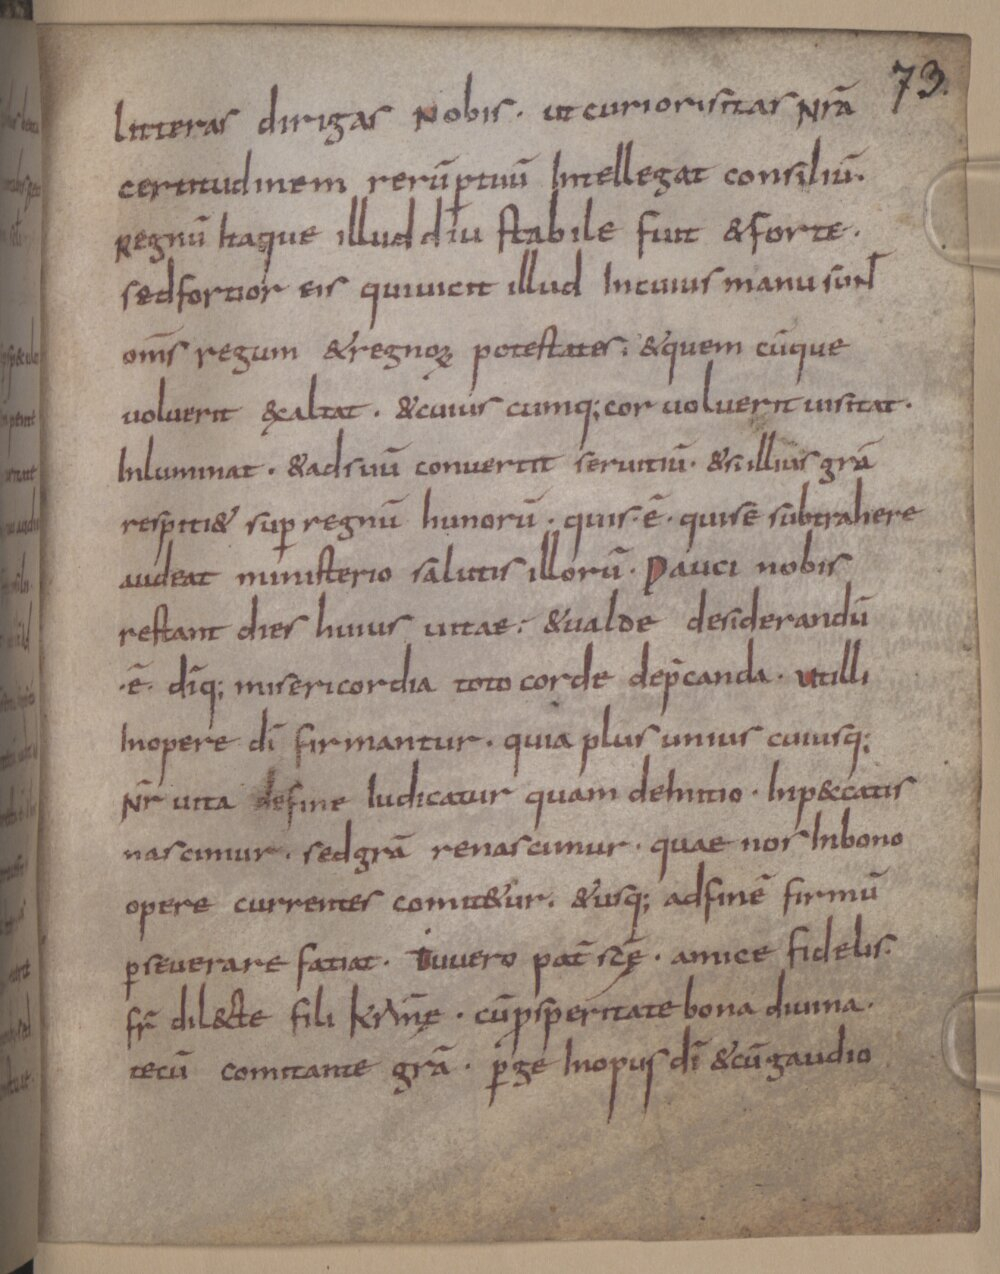 73.
litteras dirigas nobis. ut curiorisitas nr̄a
certitudinem rerū p̱tuū intellegat consiliū.
Regnū itaque illud diu stabile fuit &forte.
sedfortior eis quiuicit illud Incuius manu sunt
om̄s regum &regnoꝝ potestates. &quem cūque
uoluerit exaltat. &cuius cumq; cor uoluerit uisitat.
Inluminat. &adsuū conuertit seruitiū. &si illius grā
respiti& sup̱ regnū hunorū. quis .ē. quisē subtrahere
audeat ministerio salutis illorū. Pauci nobis
restant dies huius uitae. &ualde desiderandū
.ē. dīq; misericordia toto corde dep̄canda. utilli
Inopere dī firmantur. quia plus unius cuiusq;
Nr̄ uita define Iudicatur quam deInitio. Inp&catis
nascimur. sedgrā renascimur. quae nos Inbono
opere currentes comit&ur. &usq; adfinē firmū
p̱seuerare fatiat. Tuuero pat̄ scē. amice fidelis.
fr̄ dil&te fili kr̄mę. cū p̱speritate bona diuina.
tecū comitante grā. p̱ge Inopus dī &cū gaudio